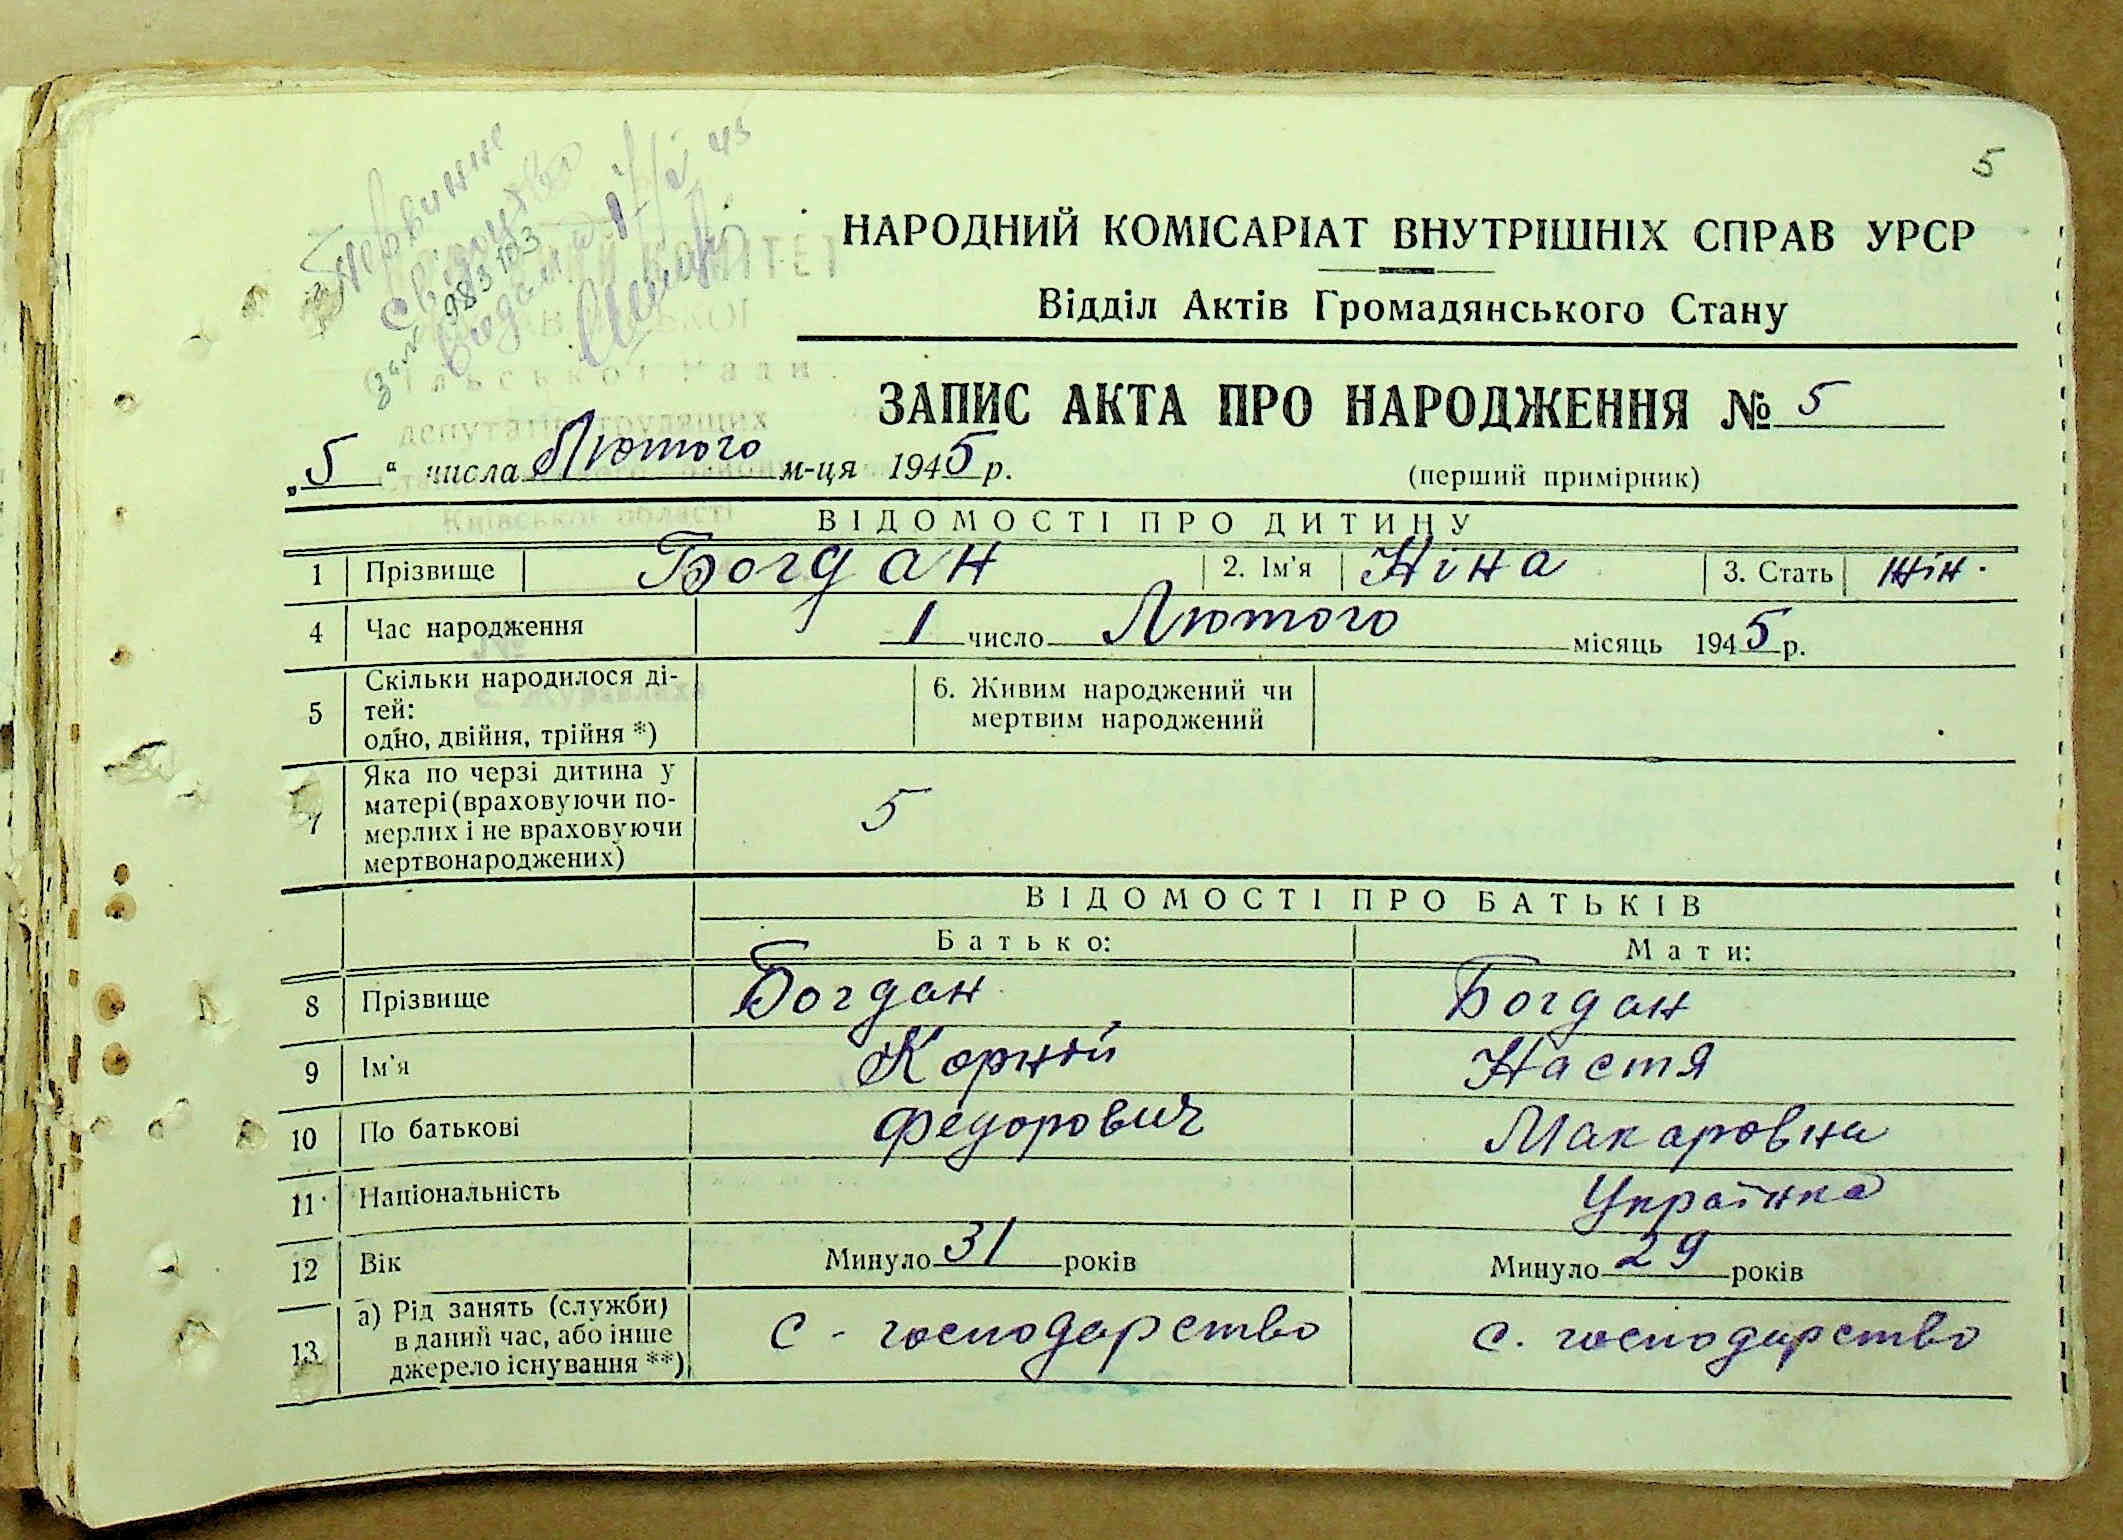 5
Первинне
свідоцтво
видан
за № 983103
КОМІТЕТ
сільської Ради
депутатів трудящих
Київської області
с. Журавлиха
НАРОДНИЙ КОМІСАРІАТ ВНУТРІШНІХ СПРАВ УРСР
Відділ Актів Громадянського Стану
ЗАПИС АКТА ПРО НАРОДЖЕННЯ № 5
„5“ числа Лютого м-ця 1945 р.
(перший примірник)
ВІДОМОСТІ ПРО ДИТИНУ
1 Прізвище Богдан 2. Ім'я Ніна 3. Стать жін.
4 Час народження 1 число Лютого місяць 1945 р.
5 Скільки народилося ді-
тей:
одно, двійня, трійня *)
6. Живим народжений чи
мертвим народжений
7 Яка по черзі дитина у
матері (враховуючи по-
мерлих і не враховуючи
мертвонароджених)
5
ВІДОМОСТІ ПРО БАТЬКІВ
Батько: Мати:
8 Прізвище Богдан Богдан
9 Ім'я Корній Настя
10 По батькові Федорович Макаровна
11 Національність Українка
12 Вік Минуло 31 років Минуло 29 років
13 а) Рід занять (служби)
в даний час, або інше
джерело існування **)
с - господарство с. господарство